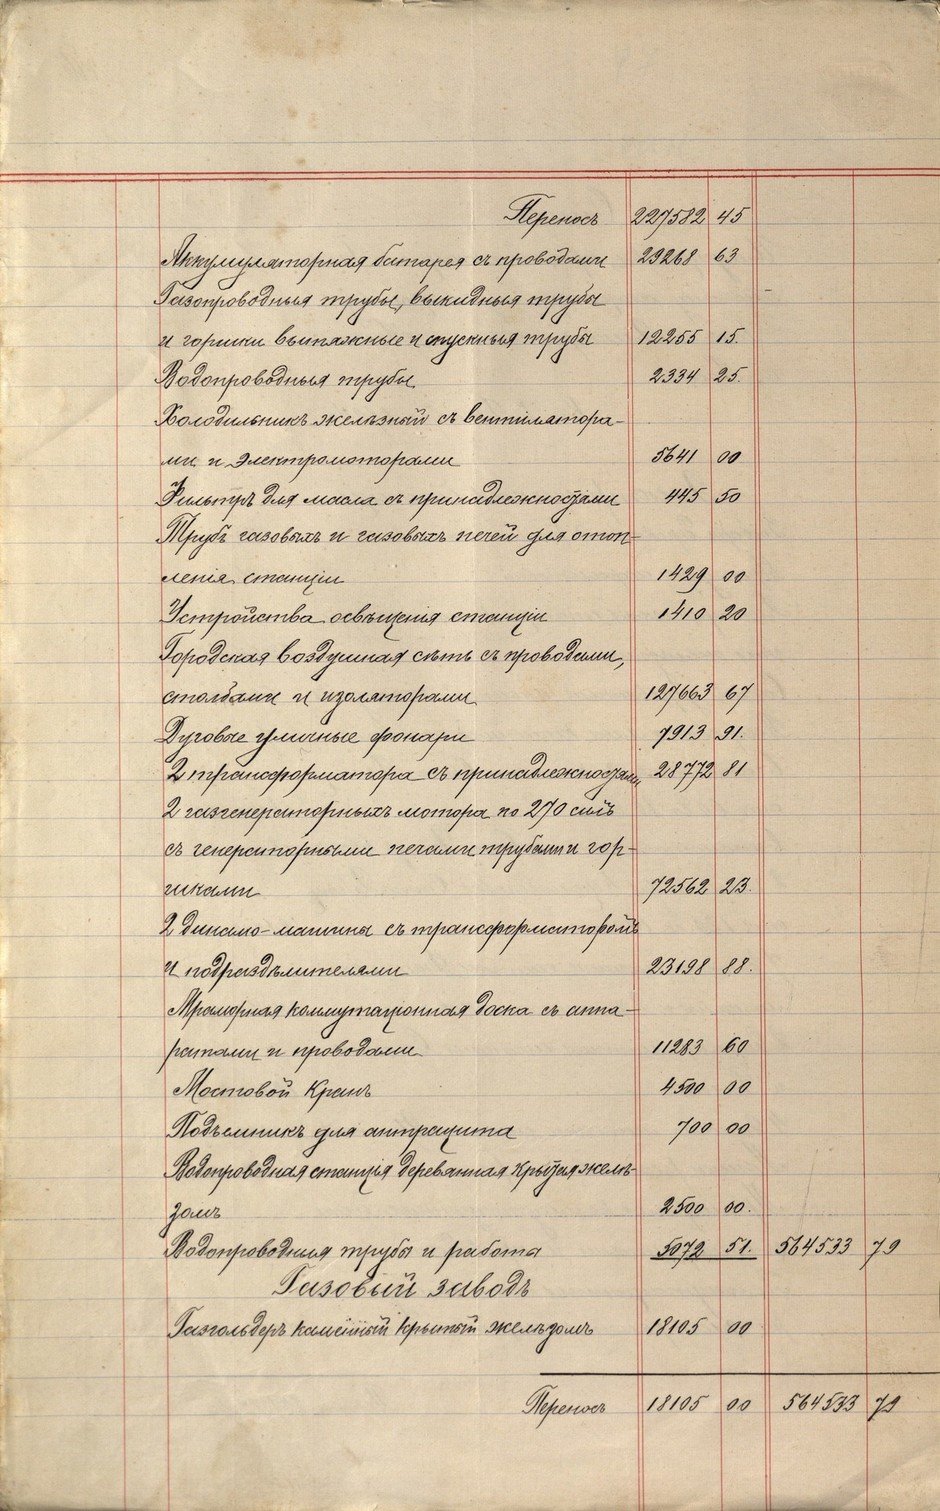 Переносъ 227582 45
Аккумуляторная батарея съ проводами 29268 63
Газопроводныя трубы, выкидныя трубы
и горшки вытяжные и спускныя трубы 12255 15.
Водопроводныя трубы 2334 25.
Холодильникъ желѣзный съ вентилятора-
ми и электромоторами 5641 00
Фильтръ для масла съ принадлежностями 445 50
Трубъ газовыхъ и газовыхъ печей для отоп-
ленія станціи 1429 00
Устройства освѣщенія станціи 1410 20
Городская воздушная сѣть съ проводами,
столбами и изоляторами 127663 67
Дуговые уличные фонари 7913 91.
2 трансформатора съ принадлежностями 28772 81
2 газгенераторныхъ мотора по 270 силъ
съ генераторными печами трубами и гор-
шками 72562 23.
2 динамо-машины съ трансформаторомъ
и подраздѣлителями 23198 88.
Мраморная коммутаціонная доска съ аппа-
ратами и проводами 11283 60
Мостовой Кранъ 4500 00
Подъемникъ для антрацита 700 00
Водопроводная станція деревянная крытая желѣ-
зомъ 2500 00.
Водопроводныя трубы и работы 5072 51. 564533 79
Газовый заводъ
Газгольдеръ каменный крытый желѣзомъ 18105 00
Переносъ 18105 00 564533 79